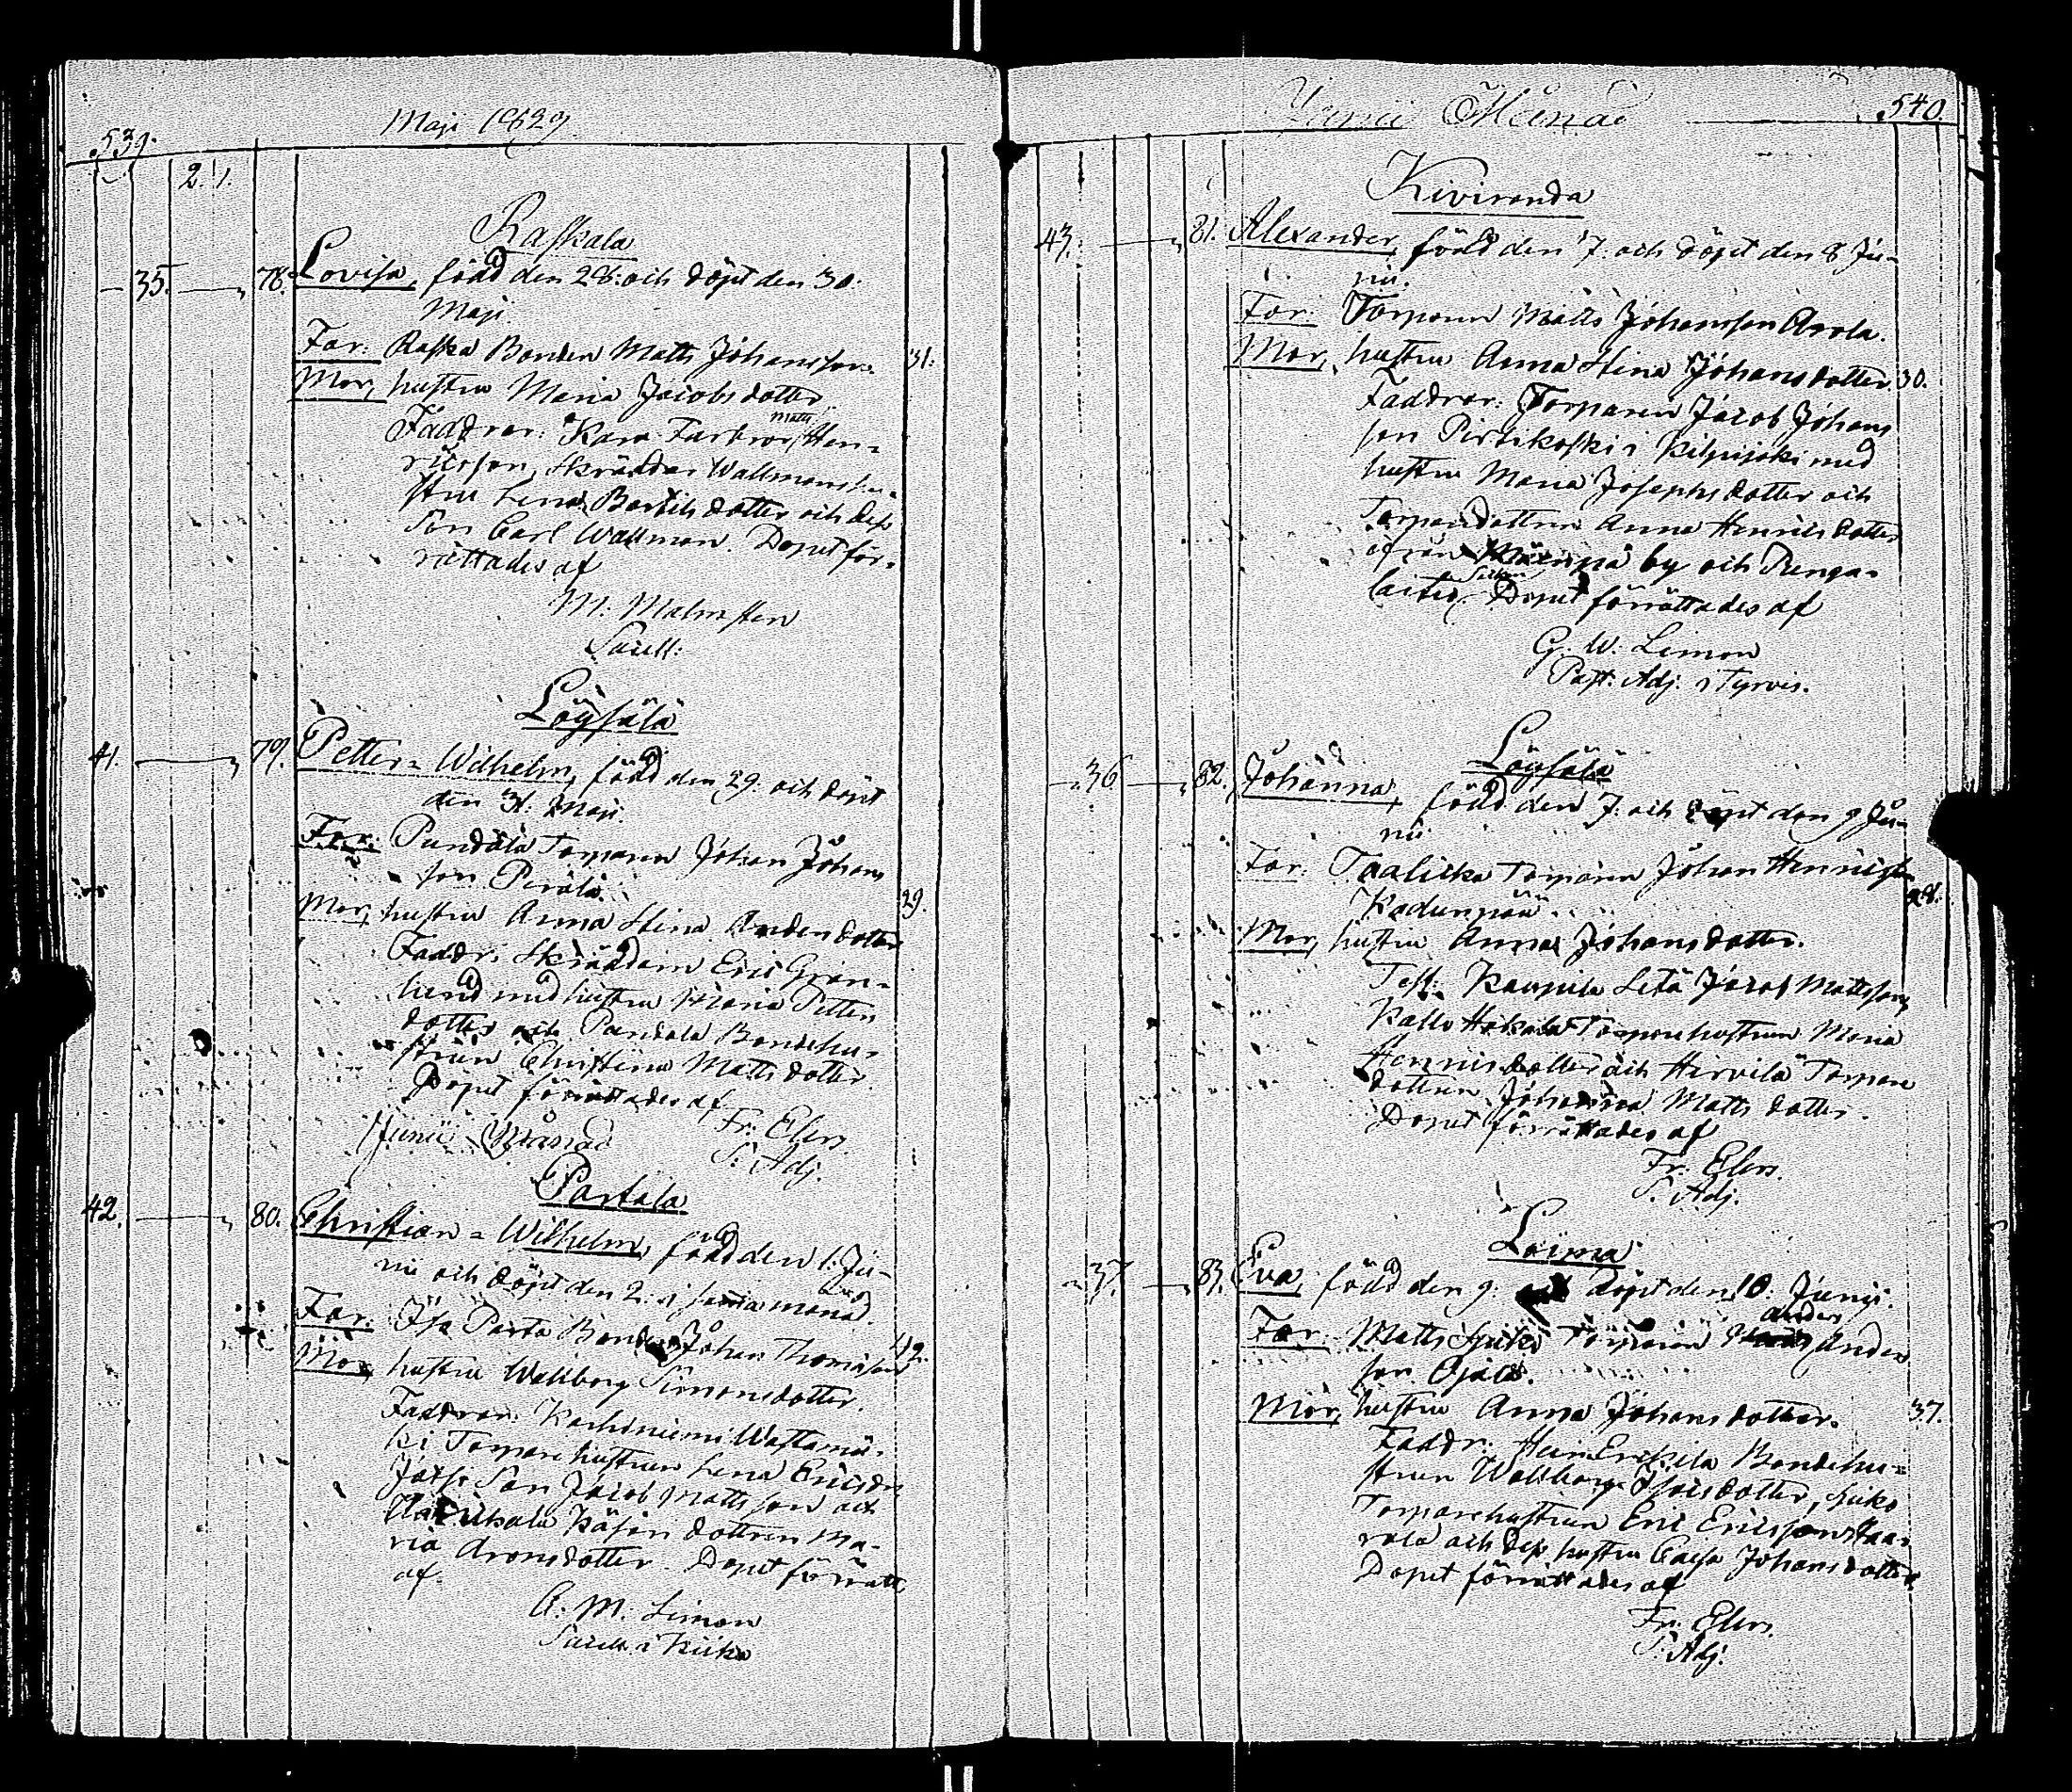 539.
Maji 1829
2. 1.
Raskala
35. 78. Lovisa, född den 28. och döpt den 30.
Maji
Far: Raska Bonden Matts Johansson. 31.
Mor, hustru Maria Jacobsdotter.
Faddrar: Karu Farbror Matts Hen-
ricsson, Skräddar Wallmans hu-
stru Lena Bertils dotter och dess
Son Carl Wallman. Dopet för-
rättades af
M: Malmsten
Sacell:
Löysälä
41. 79. Petter-Wilhelm, född den 29. och döpt
den 31. Maji.
Far: Pundala Torparen Johan Johans
son Perälä.
Mor, hustru Anna Stina Anders dotter 29.
Faddr: Skräddarn Eric Grön-
lund med hustru Maria Petters
dotter och Pundala Bondehu-
strun Christina Matts dotter.
Dopet förrättades af
Fr: Elers.
Junii Månad
P. Adj.
Partala
42. 80. Christian-Wilhelm, född den 1. Ju-
nii och döpt den 2. i samma månad.
Far: Iso Parta Bonden Johan Thomasson 42.
Mor, hustru Wallborg Simonsdotter.
Faddrar: Karhiniemi Wastamä-
ki Torpare hustrun Lena Ericsdr
Son Jacob Mattsson och
dottren Ma-
ria Aronsdotter. Dopet förrätt.
af.
A: M: Limon
Sacell. i Kiika
Junii Månad
540.
Kiviranda
43. 81. Alexander, född den 7. och döpt den 8 Ju-
nii.
Far: Torparen Matts Johansson Arola.
Mor, hustru Anna Stina Johansdotter 30.
Faddrar: Torparen Jacob Johans
son Pirtikoski i Kilpijoki med
hustru Maria Josephsdotter och
Torparedottren Anna Henrics dotter
ifrån by och Punga-
laitio Dopet förrättades af
G. W. Limon
Past: Adj: i Tyrvis.
Löysälä
36 82. Johanna, född den 7. och döpt den 9 Ju-
nii
Far: Taalicka Torparen Johan Henricsson
28.
Mor, hustru Anna Johansdotter.
Test: Kaupila Jacob Mattsson,
Kallo Hakala Torpare hustrun Maria
Henricsdotter och Hirvilä Torpare
dottren Johanna Matts dotter.
Dopet förrättades af
Fr: Elers.
P. Adj.
Loima
37. 83. Eva, född den 9. och döpt den 10. Junii.
Far: Matts Kuki Torparen Anders Anders
son Ojala.
Mor, hustru Anna Johansdotter. 37.
Faddr: Heini Erkkilä Bondehu-
strun Wallborg dotter, Kuko
Torparehustrun Eric Ericsson Haa-
rala och dess hustru Caisa Johansdotter
Dopet förrättades af
Fr: Elers.
P. Adj.